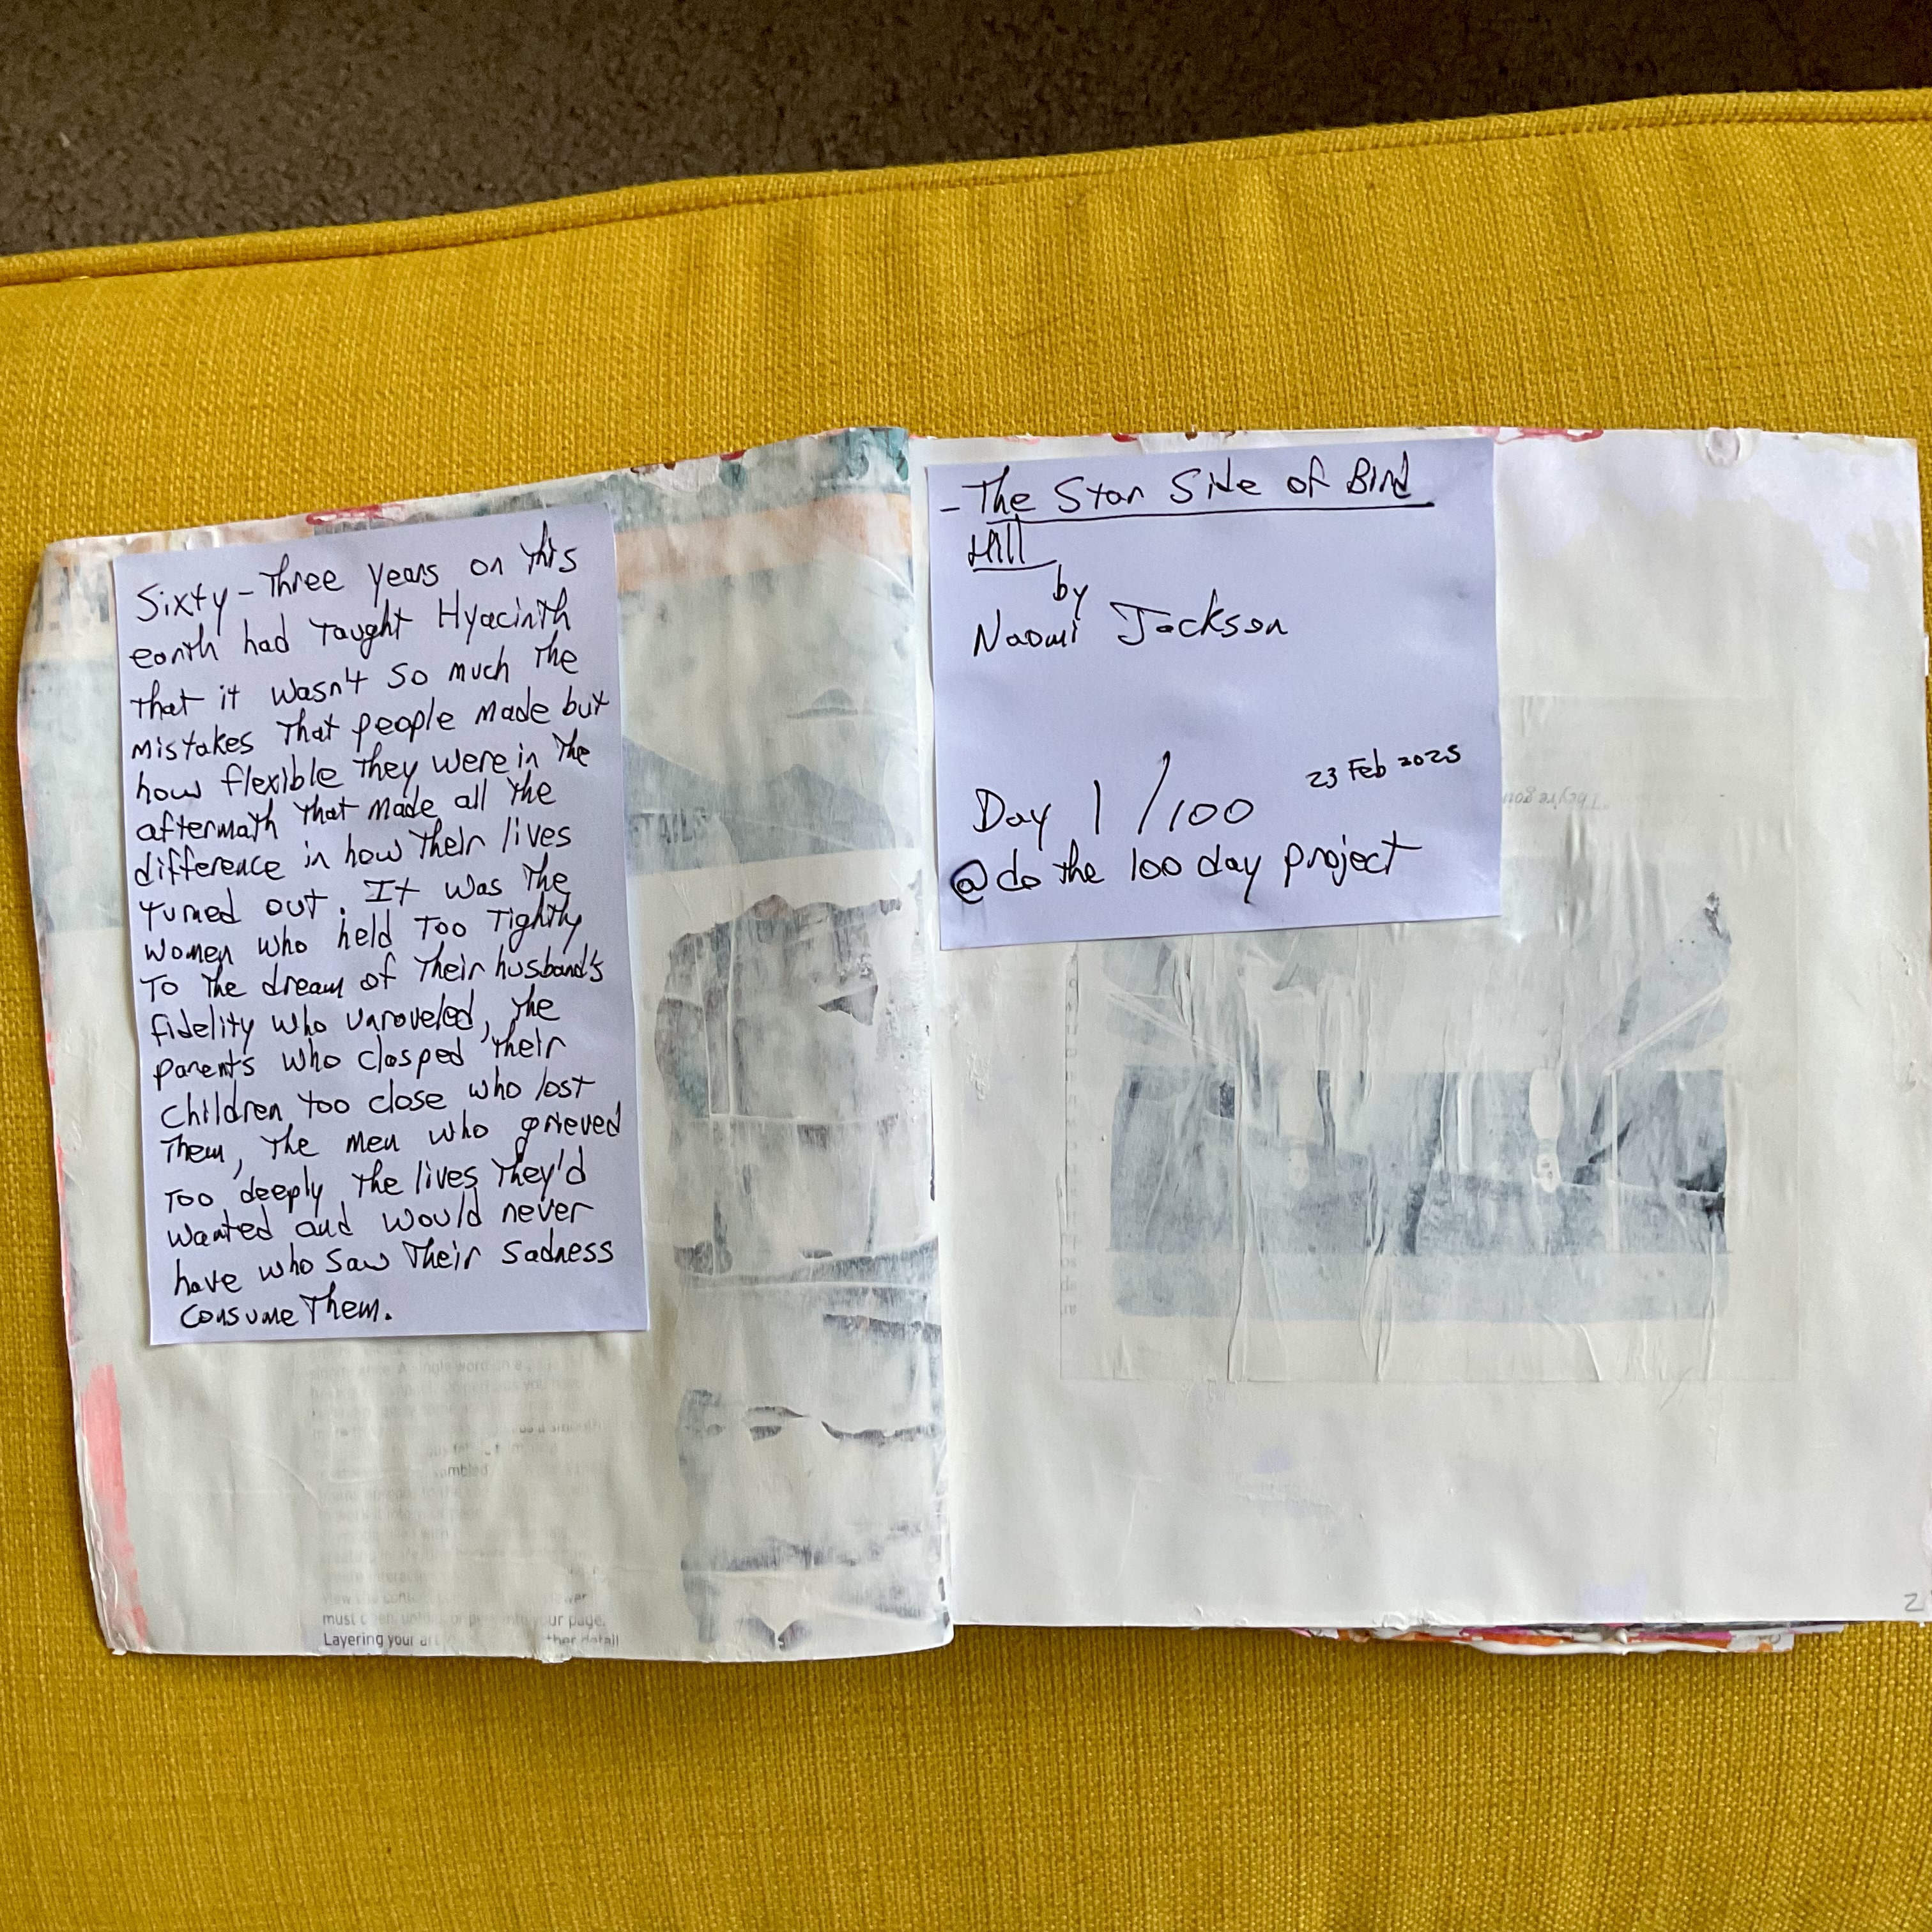 Sixty-Three years on this
earth had taught Hyacinth
that it wasn't so much the
mistakes that people made but
how flexible they were in the
aftermath that made all the
difference in how their lives
turned out. It was the
women who held too tightly
to the dream of their husband's
fidelity who unraveled, the
parents who clasped their
children too close who lost
them, the men who grieved
too deeply the lives they'd
wanted and would never
have who saw their sadness
consume them.
must
your page.
Layering your
detail
- The Star Side of Bird
Hill
by
Naomi Jackson
23 Feb 2025
Day 1/100
@do the 100 day project